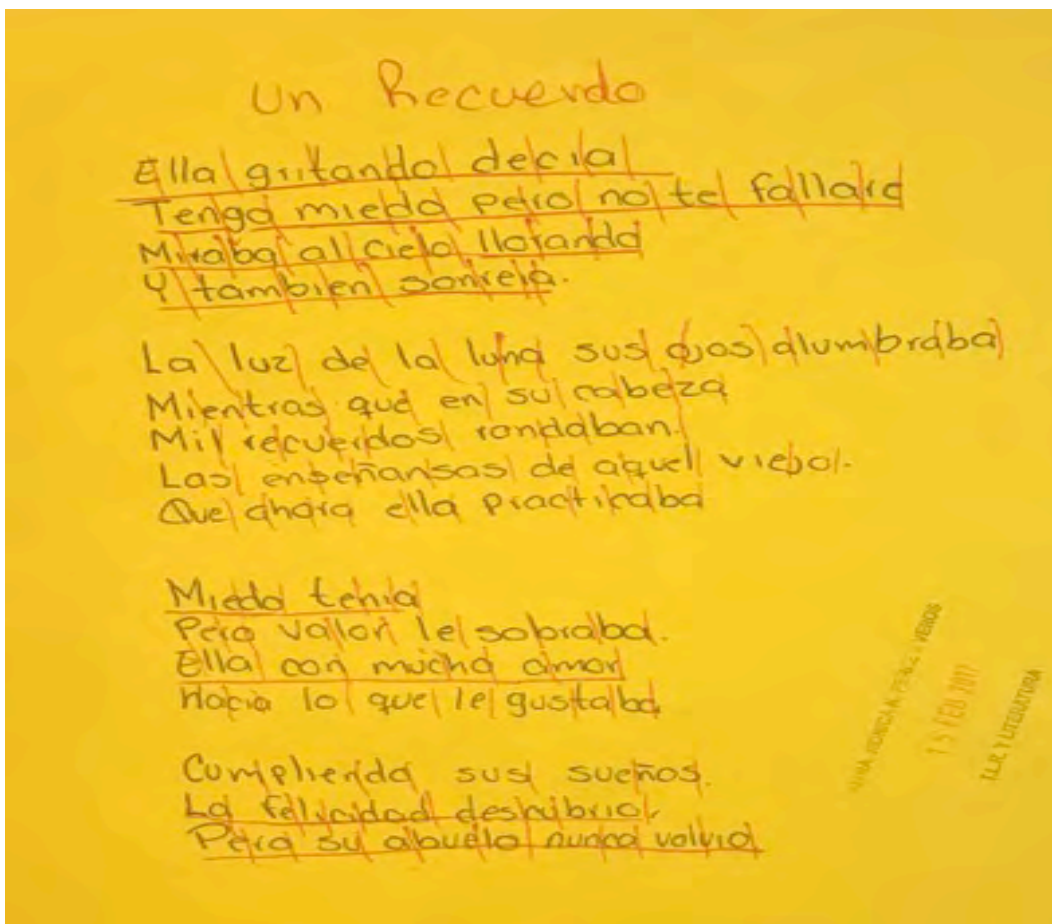 Un Recuerdo
Ella gritando decia
Tengo miedo pero no te fallare
Miraba al cielo llorando
Y tambien sonreia.
La luz de la luna sus ojos alumbraba
Mientras que en su cabeza
Mil recuerdos rondaban.
Las enseñansas de aquel viejo.
Que ahora ella practicaba
Miedo tenia
Pero valor le sobraba.
Ella con mucho amor
Hacia lo que le gustaba
Cumpliendo sus sueños.
La felicidad descubrio.
Pero su abuelo nunca volvio
15 FEB 2017
T.L.R. Y LITERATURA